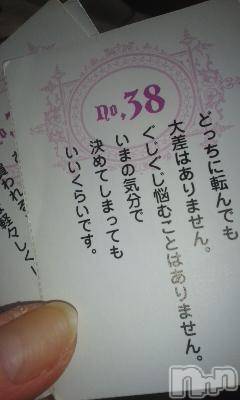 no.38
どっちに転んでも
大差はありません。
ぐじぐじ悩むことはありません。
いまの気分で
決めてしまっても
いいくらいです。
軽々しく!
Nn!